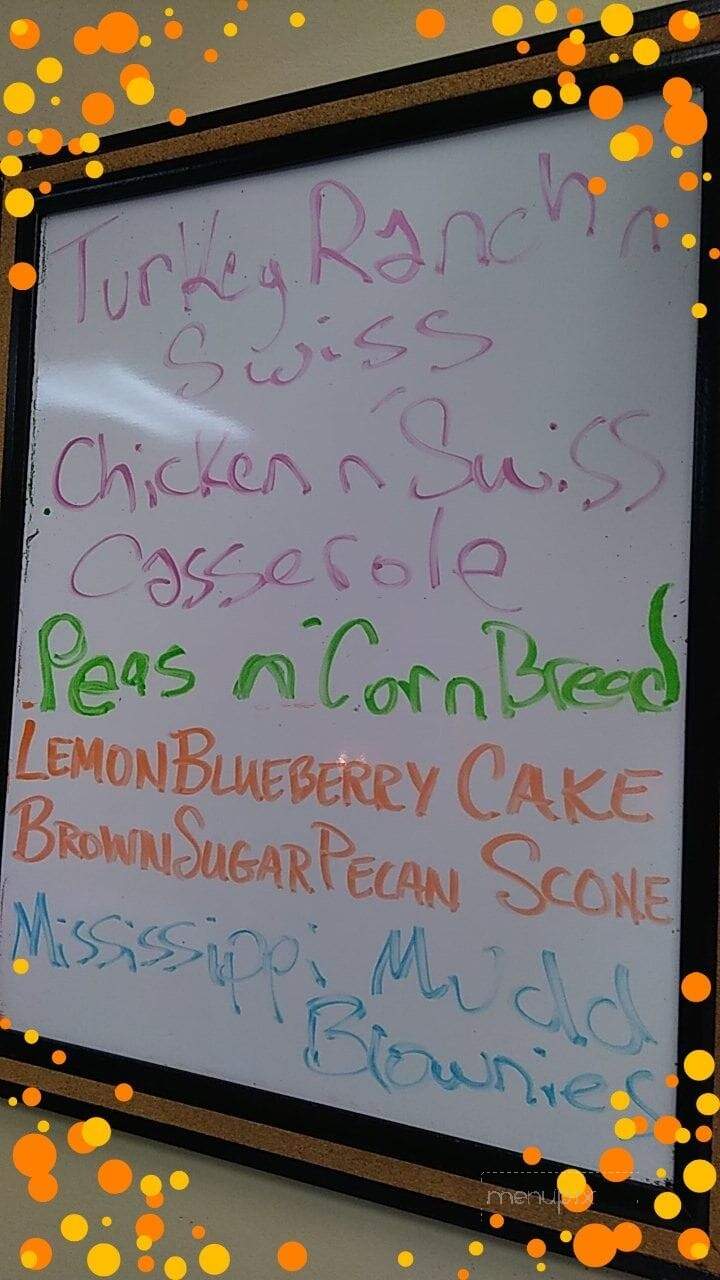 Turkey Ranch n
Swiss
Chicken n' Swiss
Casserole
Peas n' Corn Bread
LEMON BLUEBERRY CAKE
BROWN SUGAR PECAN SCONE
Mississippi Mudd
Brownies
menupix